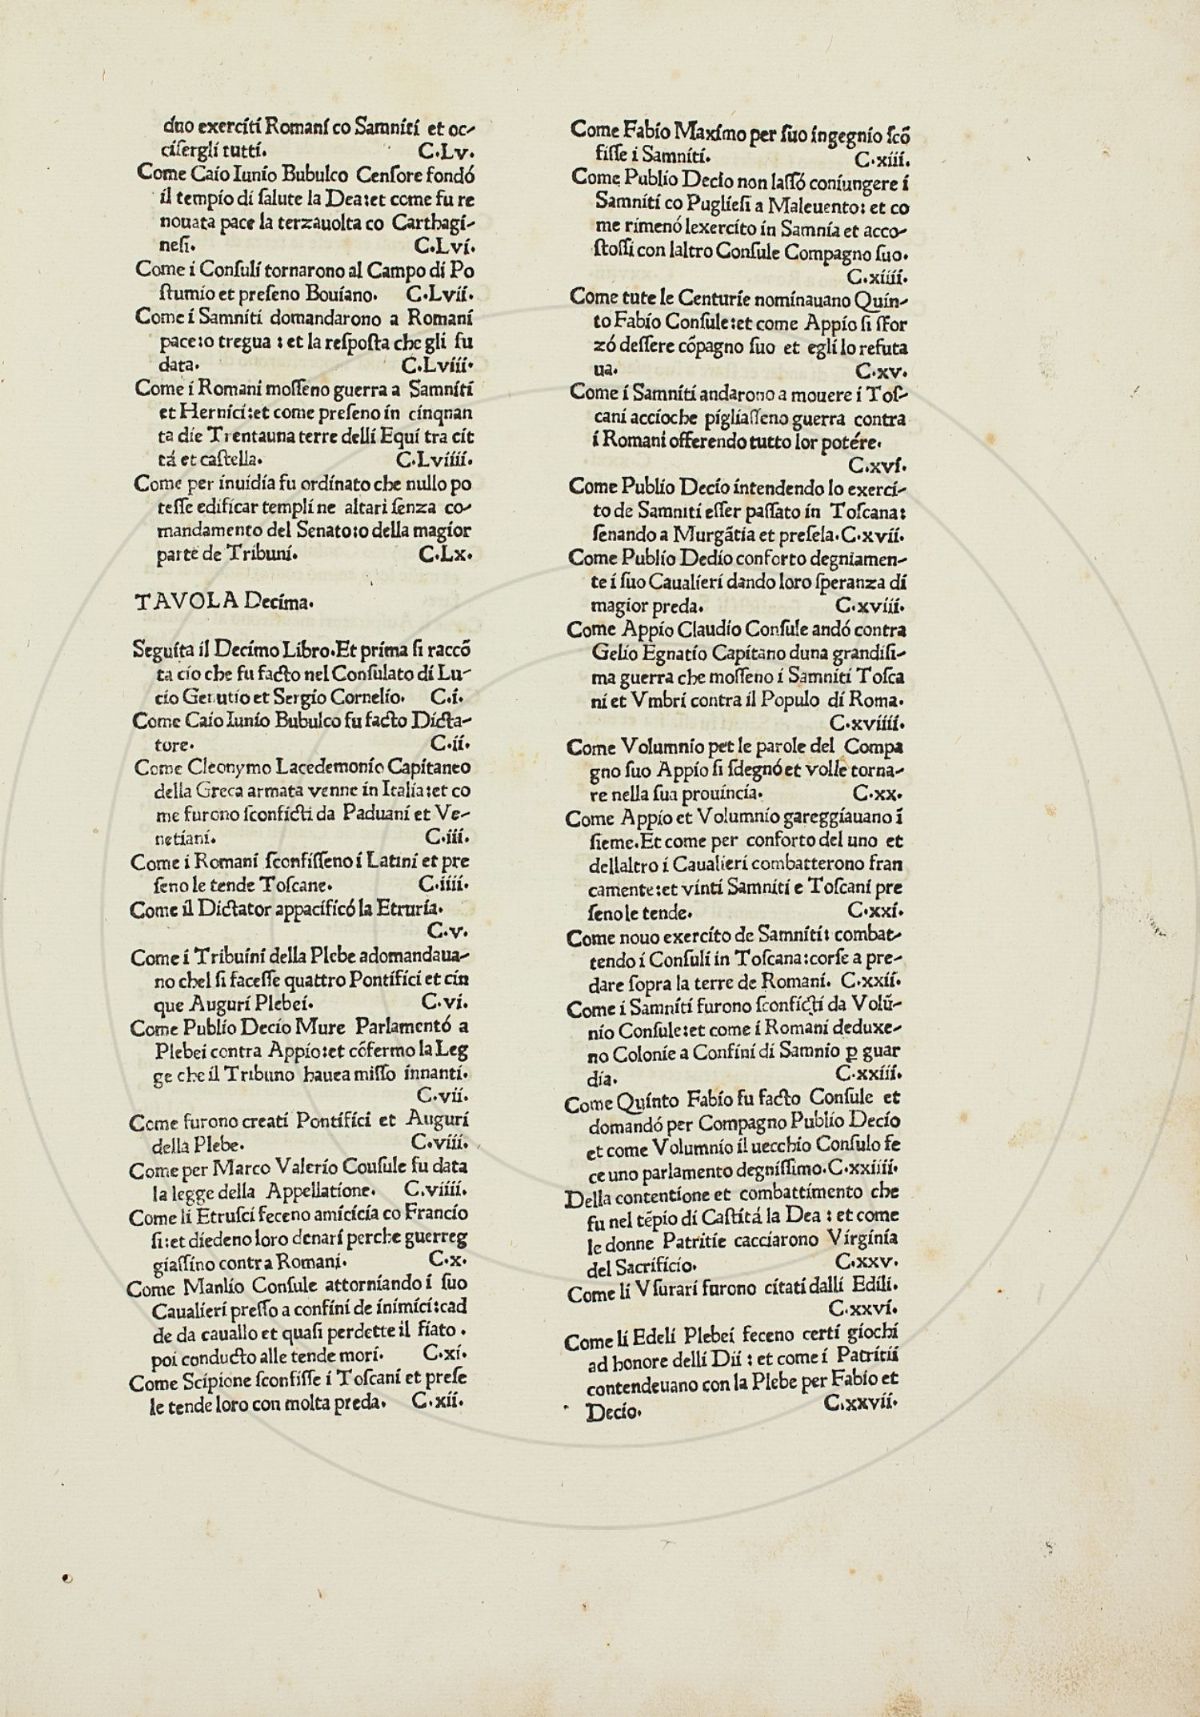 duo exerciti Romani co Samniti et oc-
ciſergli tutti. C.Lv.
Come Caio Iunio Bubulco Cenſore fondó
il tempio di ſalute la Dea:et come fu re
nouata pace la terzauolta co Carthagi-
neſi. C.Lvi.
Come i Conſuli tornarono al Campo di Po
ſtumio et preſeno Bouiano. C.Lvii.
Come i Samniti domandarono a Romani
pace:o tregua : et la reſpoſta che gli fu
data. C.Lviii.
Come i Romani moſſeno guerra a Samniti
et Hernici:et come preſeno in cinqnan
ta die Trentauna terre delli Equi tra cit
tá et caſtella. C.Lviiii.
Come per inuidia fu ordinato che nullo po
teſſe edificar templi ne altari ſenza co-
mandamento del Senato:o della magior
parte de Tribuni. C.Lx.
TAVOLA Decima.
Seguita il Decimo Libro.Et prima ſi raccō
ta cio che fu facto nel Conſulato di Lu-
cio Genutio et Sergio Cornelio. C.i.
Come Caio Iunio Bubulco fu facto Dicta-
tore. C.ii.
Come Cleonymo Lacedemonio Capitaneo
della Greca armata venne in Italia:et co
me furono ſconficti da Paduani et Ve-
netiani. C.iii.
Come i Romani ſconfiſſeno i Latini et pre
ſeno le tende Toſcane. C.iiii.
Come il Dictator appacificó la Etruria.
C.v.
Come i Tribuini della Plebe adomandaua-
no chel ſi faceſſe quattro Pontifici et cin
que Auguri Plebei. C.vi.
Come Publio Decio Mure Parlamentó a
Plebei contra Appio:et cōfermo la Leg
ge che il Tribuno hauea miſſo innanti.
C.vii.
Come furono creati Pontifici et Auguri
della Plebe. C.viii.
Come per Marco Valerio Couſule fu data
la legge della Appellatione. C.viiii.
Come li Etruſci feceno amicicia co Francio
ſi:et diedeno loro denari perche guerreg
giaſſino contra Romani. C.x.
Come Manlio Conſule attorniando i ſuo
Caualieri preſſo a confini de inimici:cad
de da cauallo et quaſi perdette il fiato .
poi conducto alle tende mori. C.xi.
Come Scipione ſconfiſſe i Toſcani et preſe
le tende loro con molta preda. C.xii.
Come Fabio Maximo per ſuo ingegnio ſcō
fiſſe i Samniti. C.xiii.
Come Publio Decio non laſſó coniungere i
Samniti co Puglieſi a Maleuento: et co
me rimenó lexercito in Samnia et acco-
ſtoſſi con laltro Conſule Compagno ſuo.
C.xiiii.
Come tute le Centurie nominauano Quin-
to Fabio Conſule:et come Appio ſi ſfor
zó deſſere cōpagno ſuo et egli lo refuta
ua. C.xv.
Come i Samniti andarono a mouere i Toſ-
cani accioche pigliaſſeno guerra contra
i Romani offerendo tutto lor potére.
C.xvi.
Come Publio Decio intendendo lo exerci-
to de Samniti eſſer paſſato in Toſcana:
ſenando a Murgātia et preſela.C.xvii.
Come Publio Dedio conforto degniamen-
te i ſuo Caualieri dando loro ſperanza di
magior preda. C.xviii.
Come Appio Claudio Conſule andó contra
Gelio Egnatio Capitano duna grandiſi-
ma guerra che moſſeno i Samniti Toſca
ni et Vmbri contra il Populo di Roma.
C.xviiii.
Come Volumnio pet le parole del Compa
gno ſuo Appio ſi ſdegnó et volle torna-
re nella ſua prouincia. C.xx.
Come Appio et Volumnio gareggiauano ī
ſieme.Et come per conforto del uno et
dellaltro i Caualieri combatterono fran
camente:et vinti Samniti e Toſcani pre
ſeno le tende. C.xxi.
Come nouo exercito de Samniti: combat-
tendo i Conſuli in Toſcana:corſe a pre-
dare ſopra la terre de Romani. C.xxii.
Come i Samniti furono ſconficti da Volū-
nio Conſule:et come i Romani deduxe-
no Colonie a Confini di Samnio ꝑ guar
dia. C.xxiii.
Come Quinto Fabio fu facto Conſule et
domandó per Compagno Publio Decio
et come Volumnio il uecchio Conſulo fe
ce uno parlamento degniſſimo.C.xxiiii.
Della contentione et combattimento che
fu nel tēpio di Caſtitá la Dea : et come
le donne Patritie cacciarono Virginia
del Sacrificio. C.xxv.
Come li Vſurari furono citati dalli Edili.
C.xxvi.
Come li Edeli Plebei feceno certi giochi
ad honore delli Dii : et come i Patritii
contendeuano con la Plebe per Fabio et
Decio. C.xxvii.